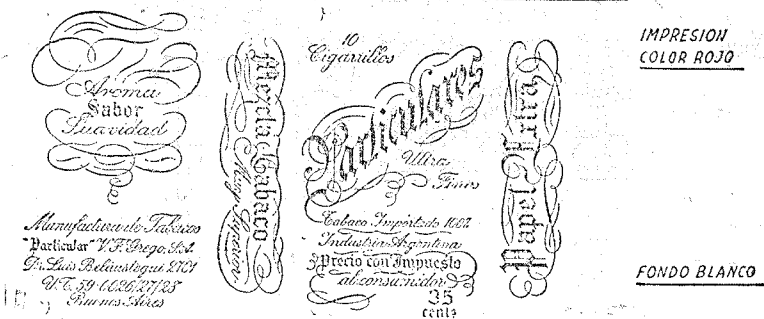 Aroma
Sabor
Suavidad
Manufactura de Tabacos
"Particular" V.F. Grego, S.A.
Dr. Luis Beláustegui
U.T. 59-0026/27/28
Buenos Aires
Mezcla Tabaco
Muy Superior
10
Cigarrillos
Particulares
Ultra
Finos
Tabaco Importado 100%
Industria Argentina
Precio con Impuesto
al consumidor
35
cents
Papel Extra
IMPRESION
COLOR ROJO
FONDO BLANCO